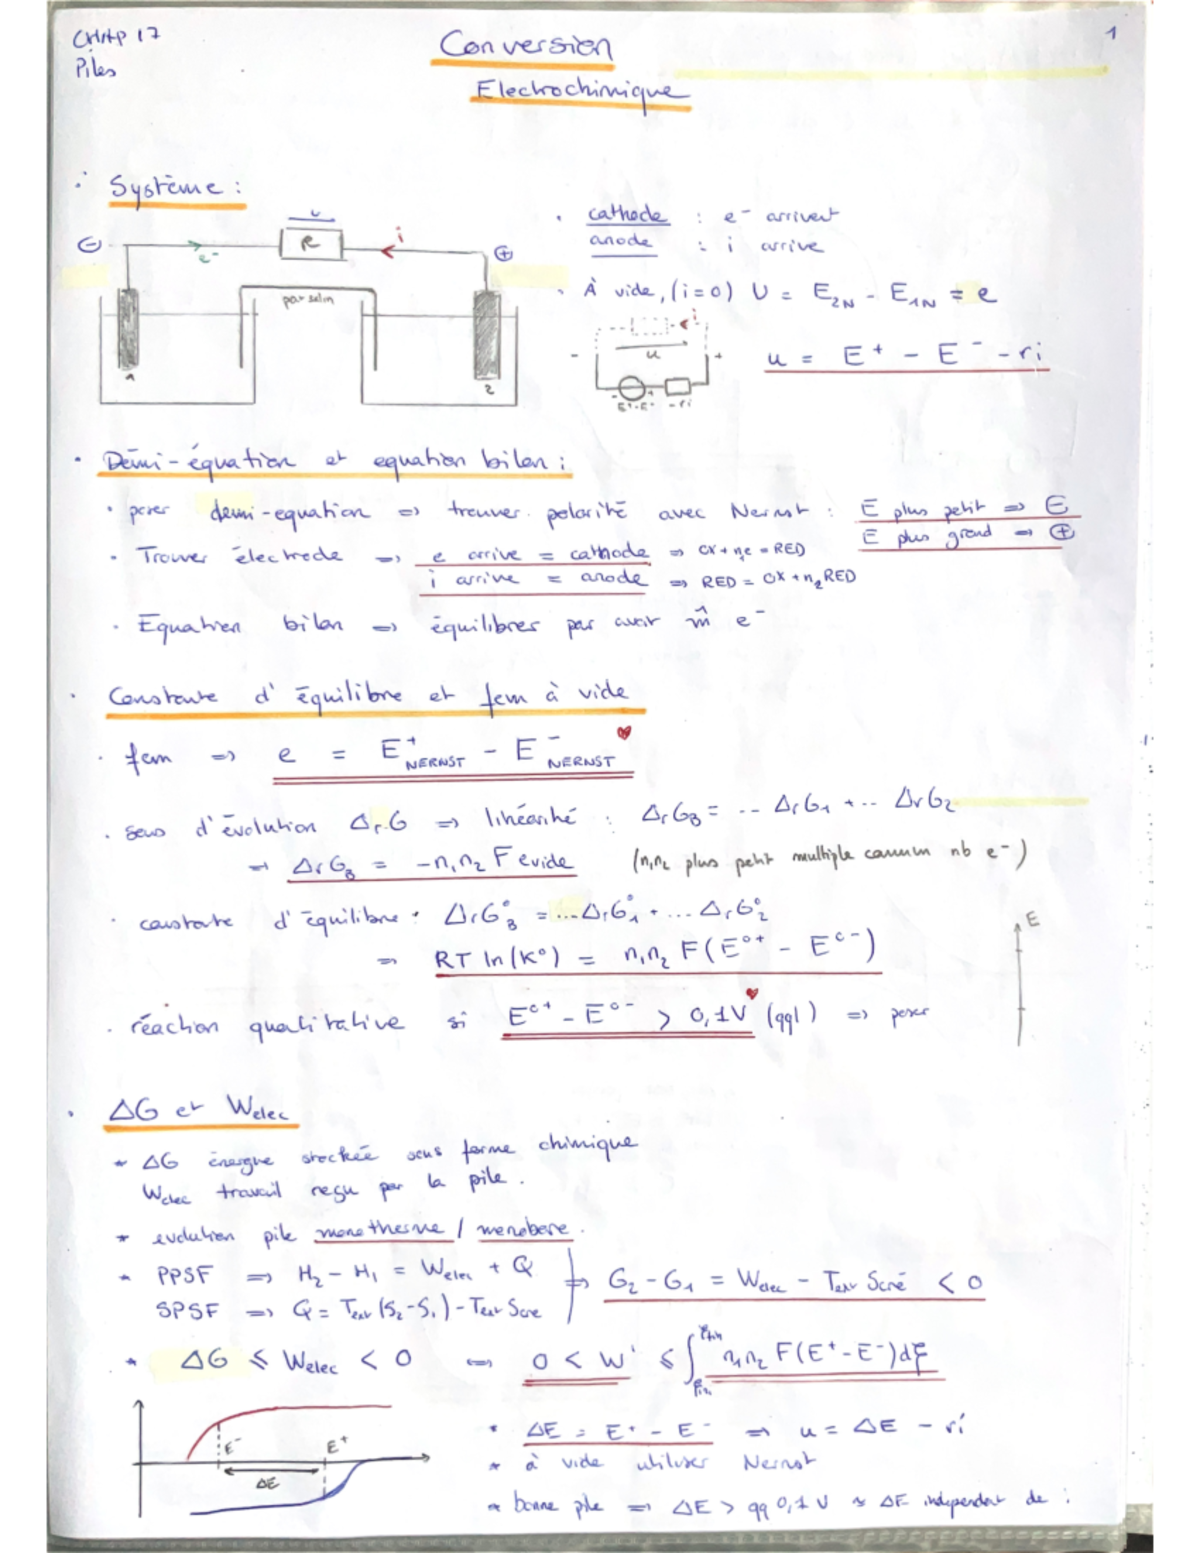 CHAP 17
Piles
Conversion
Electrochimique
1
Système :
⊖ e⁻ R u i ⊕
1 2
cathode : e⁻ arrivent
anode : i arrive
À vide, (i=0) U = E₂N - E₁N = e
i
u
- +
E⁺-E⁻ -ri
u = E⁺ - E⁻ - ri
Demi-équation et equation bilan :
poser demi-equation => trouver polarité avec Nernst : E plus petit => ⊖
E plus grand => ⊕
Trouver électrode => e arrive = cathode => OX + ne = RED
i arrive = anode => RED = OX + n₂RED
Equation bilan => équilibres par avoir m̂ e⁻
Constante d'équilibre et fem à vide
fem => e = E⁺NERNST - E⁻NERNST ♥
sens d'évolution ΔrG => linéarité : ΔrG₃ = ... ΔrG₁ + ... ΔrG₂
=> ΔrG₃ = -n₁n₂ F e vide (n₁n₂ plus petit multiple commun nb e⁻)
constante d'équilibre : ΔrG°₃ = ... ΔrG°₁ + ... ΔrG°₂
=> RT ln(K°) = n₁n₂ F(E°⁺ - E°⁻)
E
réaction qualitative si E°⁺ - E°⁻ > 0,1V ♥ (qql) => poser
ΔG et Welec
* ΔG énergie stockée sous forme chimique
Welec travail reçu par la pile.
* evolution pile monotherme / monobare.
* PPSF => H₂ - H₁ = Welec + Q
SPSF => Q = Text(S₂-S₁) - Text Scre
=> G₂ - G₁ = Welec - Text Scré < 0
* ΔG ≤ Welec < 0 <=> 0 < W' ≤ ∫ n₁n₂ F(E⁺-E⁻)dξ
E⁻ E⁺
ΔE
* ΔE = E⁺ - E⁻ => u = ΔE - ri
* à vide utiliser Nernst
* bonne pile => ΔE > qq 0,1 V ≈ ΔE independant de i